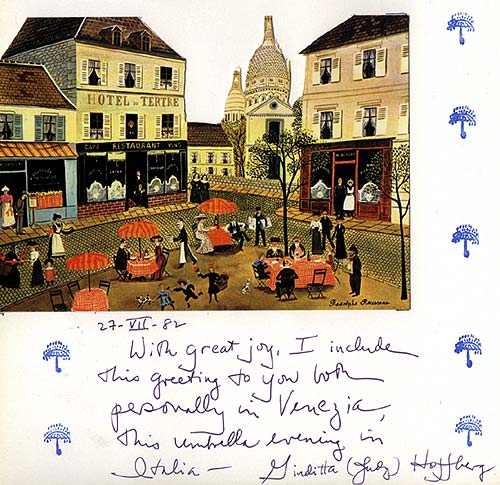 HOTEL DU TERTRE
CAFÉ RESTAURANT VINS
Rodolphe Rousseau
27-VII-82
With great joy, I include
this greeting to you both
personally in Venezia,
this umbrella evening in
Italia - Giuditta (Judy) Hoffberg